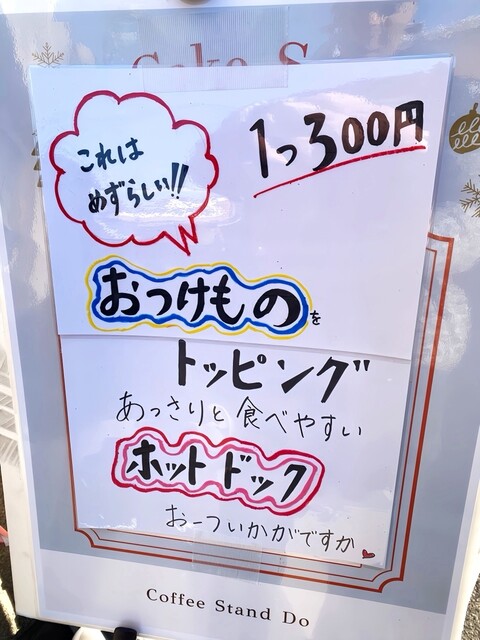 Cake S
これは
めずらしい!!
1つ300円
おつけもの を
トッピング
あっさりと食べやすい
ホットドック
お一ついかがですか
Coffee Stand Do